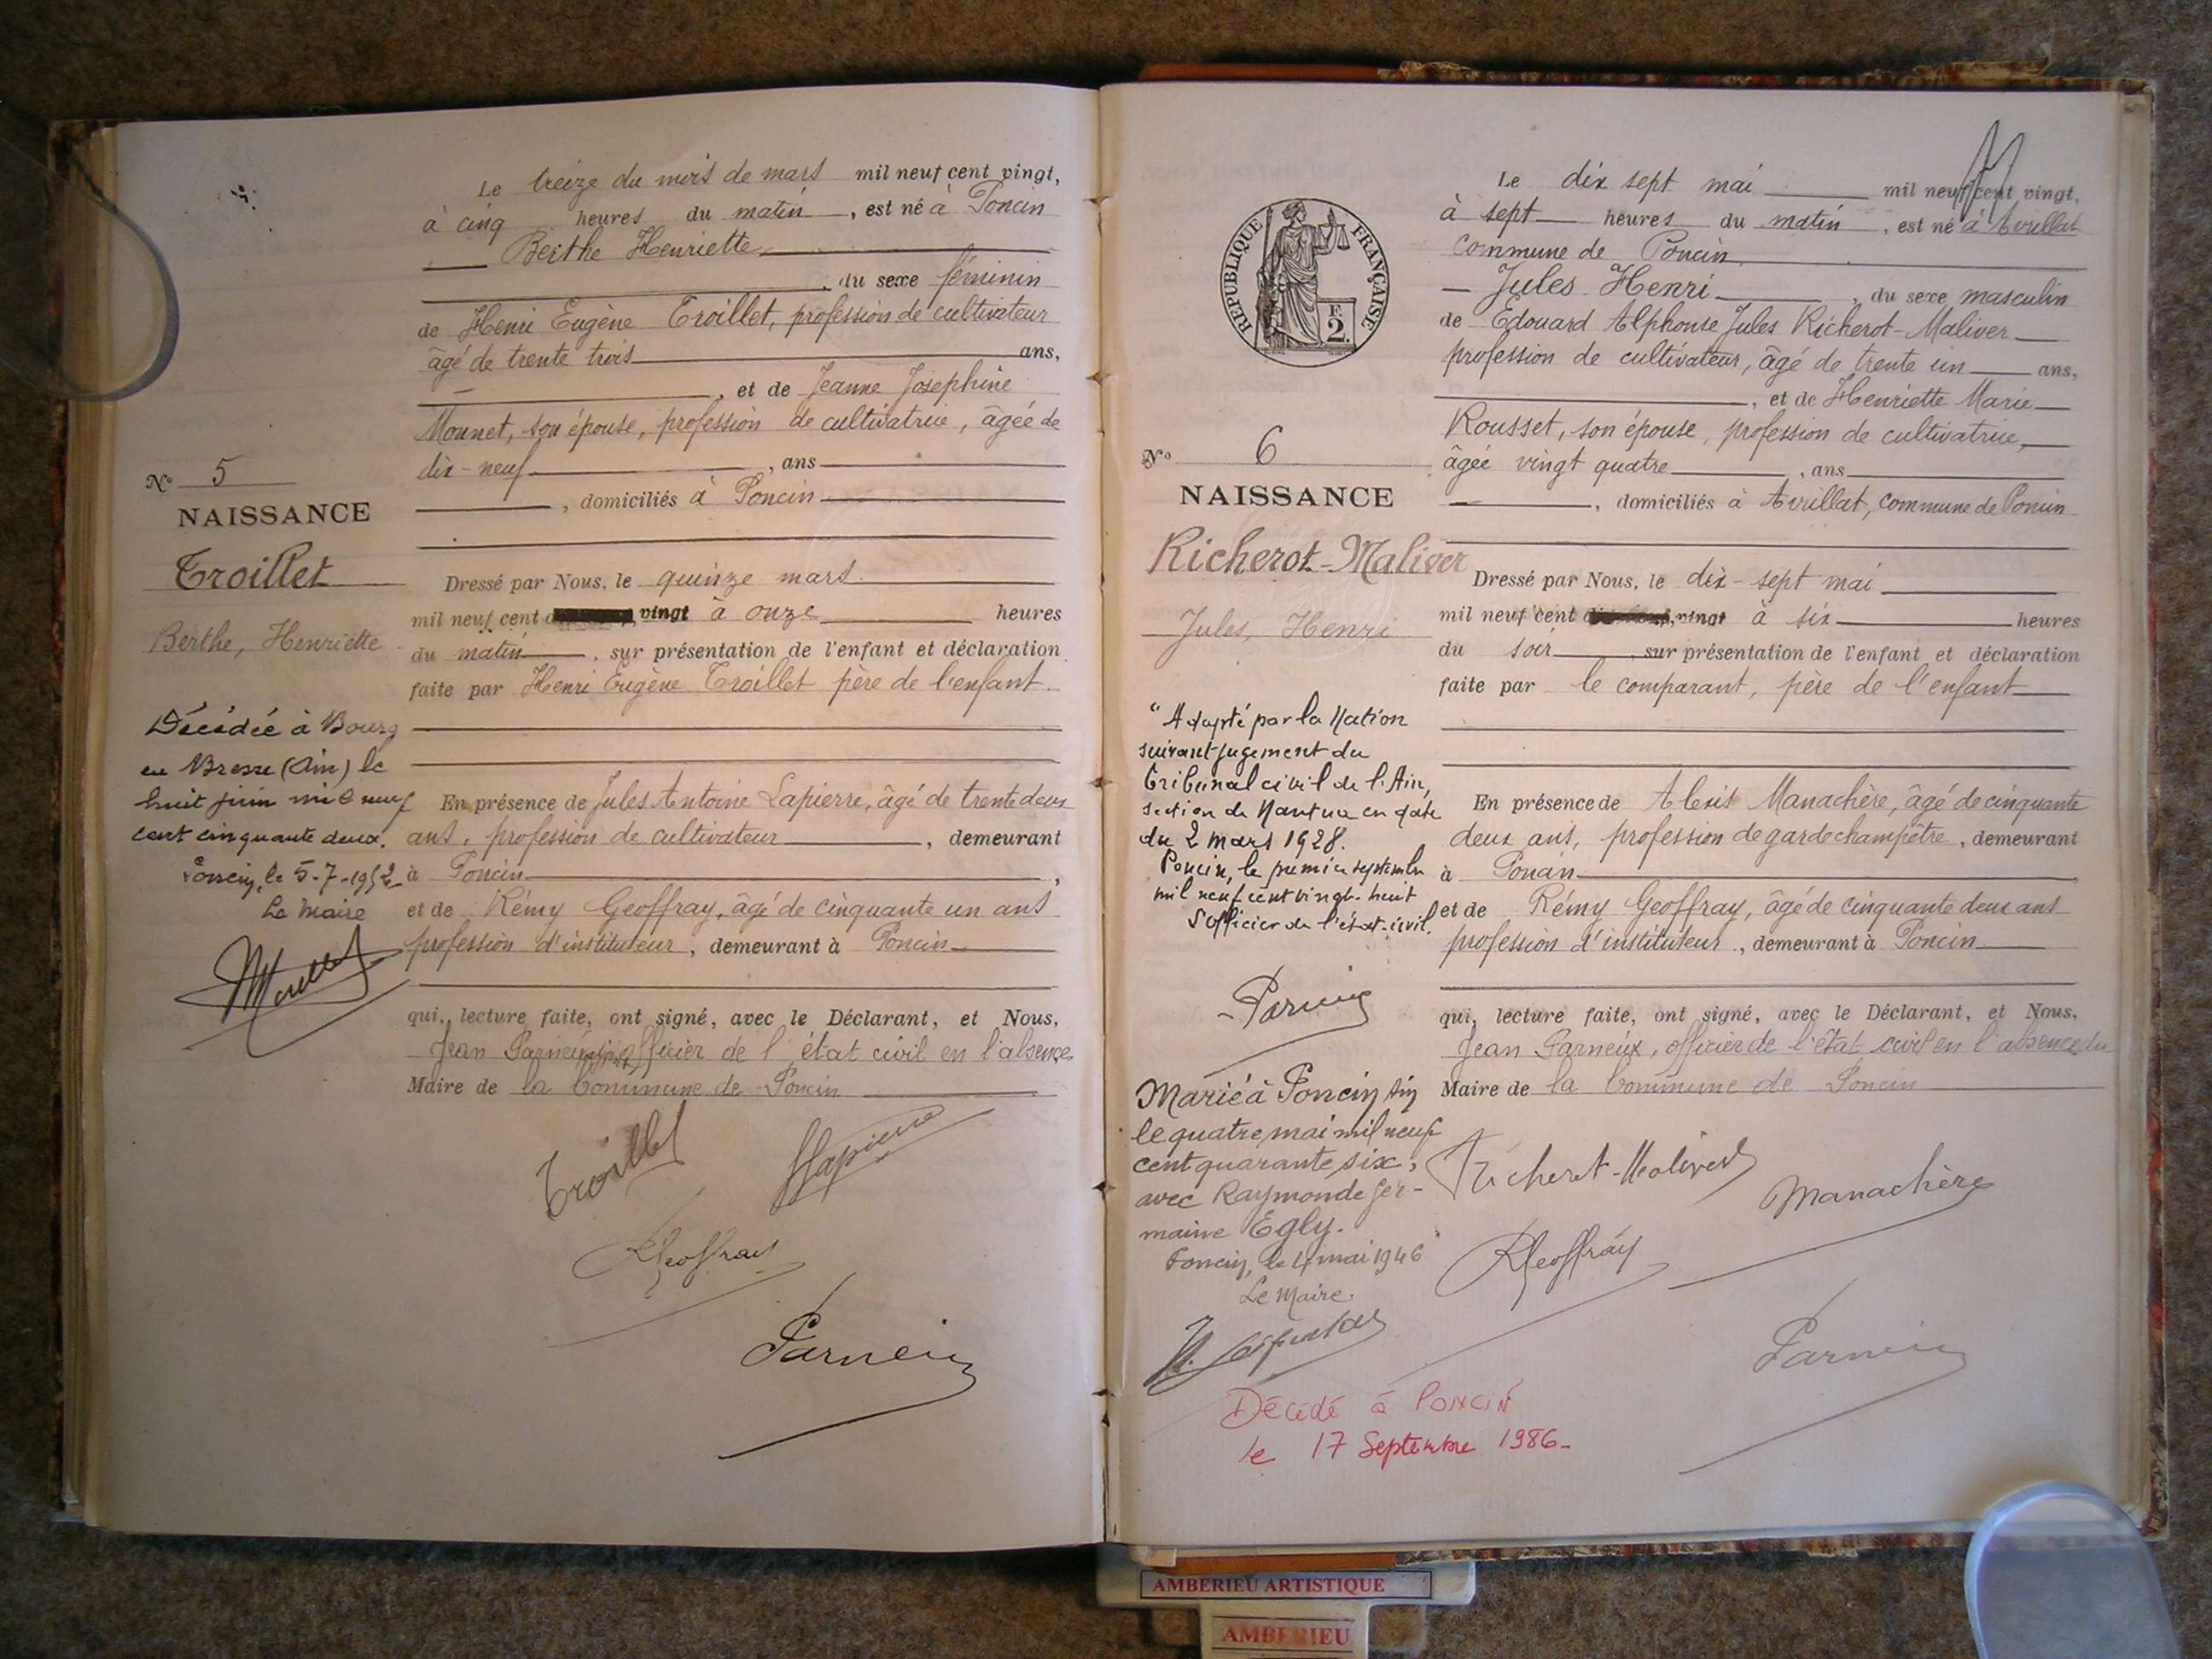 Le treize du mois de mars mil neuf cent vingt,
à cinq heures du matin, est né à Poncin
Berthe Henriette,
, du sexe féminin
de Henri Eugène Troillet, profession de cultivateur
âgé de trente trois ans,
, et de Jeanne Josephine
Monnet, son épouse, profession de cultivatrice, âgée de
dix-neuf, ans
, domiciliés à Poncin
No 5
NAISSANCE
Troillet
Berthe, Henriette
Dressé par Nous, le quinze mars
mil neuf cent vingt à onze heures
du matin, sur présentation de l'enfant et déclaration
faite par Henri Eugène Troillet père de l'enfant.
Décédée à Bourg
en Bresse (Ain) le
huit juin mil neuf
cent cinquante deux.
Poncin, le 5-7-1952
Le Maire
En présence de Jules Antoine Lapierre, âgé de trente deux
ans, profession de cultivateur, demeurant
à Poncin,
et de Rémy Geoffray, âgé de cinquante un ans
profession d'instituteur, demeurant à Poncin
qui, lecture faite, ont signé, avec le Déclarant, et Nous,
Jean Parneix officier de l'état civil en l'absence
Maire de la Commune de Poncin
Troillet
Lapierre
RGeoffray
Parneix
Le dix sept mai mil neuf cent vingt,
à sept heures du matin, est né à Avrillat
commune de Poncin
Jules Henri, du sexe masculin
de Edouard Alphonse Jules Richerot-Maliver
profession de cultivateur, âgé de trente un ans,
, et de Henriette Marie
Rousset, son épouse, profession de cultivatrice,
âgée vingt quatre, ans
, domiciliés à Avrillat, commune de Poncin
REPUBLIQUE FRANÇAISE
F.
2.
No 6
NAISSANCE
Richerot-Maliver
Jules, Henri
Dressé par Nous, le dix-sept mai
mil neuf cent vingt à six heures
du soir, sur présentation de l'enfant et déclaration
faite par le comparant, père de l'enfant
"Adopté par la Nation
suivant jugement du
Tribunal civil de l'Ain,
section de Nantua en date
du 2 mars 1928.
Poncin, le premier septembre
mil neuf cent vingt-huit
L'officier de l'état-civil.
Parneix
En présence de Alexis Manachère, âgé de cinquante
deux ans, profession de garde champêtre, demeurant
à Poncin
et de Rémy Geoffray, âgé de cinquante deux ans
profession d'instituteur, demeurant à Poncin
qui, lecture faite, ont signé, avec le Déclarant, et Nous,
Jean Parneix, officier de l'état civil en l'absence du
Maire de la Commune de Poncin
Marié à Poncin Ain
le quatre mai mil neuf
cent quarante six,
avec Raymonde Ger-
maine Egly.
Poncin, le 4 mai 1946
Le Maire.
Richerot-Maliver
Manachère
RGeoffray
Parneix
Décédé à Poncin
le 17 Septembre 1986-
AMBERIEU ARTISTIQUE
AMBERIEU